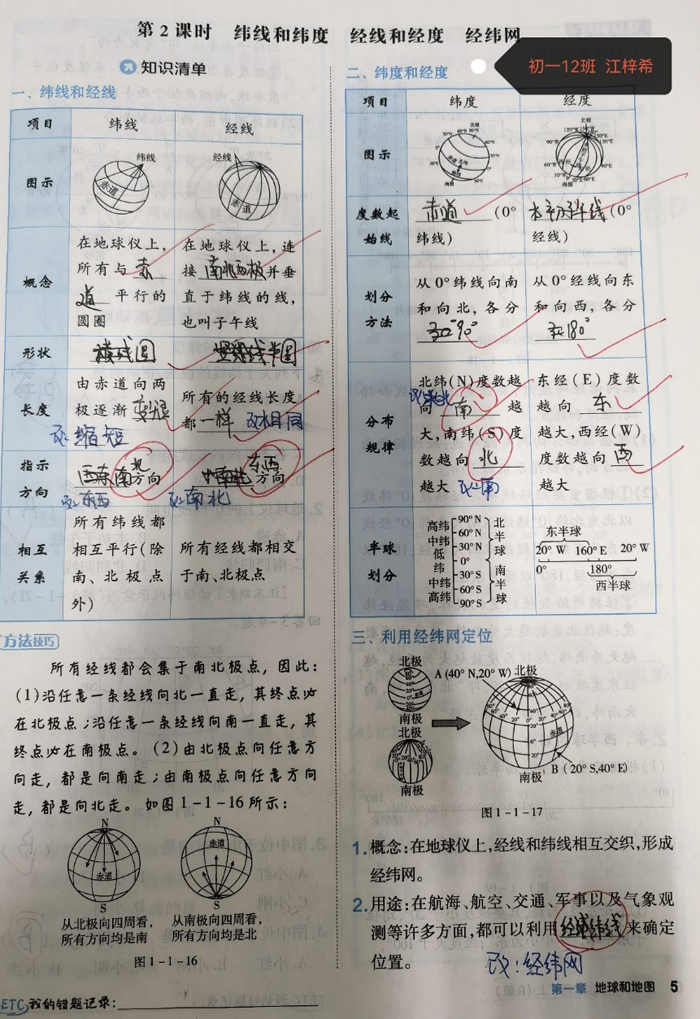 第2课时 纬线和纬度 经线和经度 经纬网
初一12班 江梓希
知识清单
一、纬线和经线
项目 纬线 经线
图示
纬线
赤道
经线
赤道
概念
在地球仪上,
所有与赤
道平行的
圆圈
在地球仪上,连
接南北两极并垂
直于纬线的线,
也叫子午线
形状
圆
半圆
长度
由赤道向两
极逐渐变短
改:缩短
所有的经线长度
都一样 改:相同
指示
方向
方向
改:东西
东西方向
改:南北
相互
关系
所有纬线都
相互平行(除
南、北极点
外)
所有经线都相交
于南、北极点
方法技巧
所有经线都会集于南北极点,因此:
(1)沿任意一条经线向北一直走,其终点必
在北极点;沿任意一条经线向南一直走,其
终点必在南极点。(2)由北极点向任意方
向走,都是向南走;由南极点向任意方向
走,都是向北走。如图1-1-16所示:
N
赤道
S
N
赤道
S
从北极向四周看,
所有方向均是南
从南极向四周看,
所有方向均是北
图1-1-16
ETC 我的错题记录:
二、纬度和经度
项目 纬度 经度
图示
北极
南极
北极
南极
度数起
始线
赤道(0°
纬线)
本初子午线(0°
经线)
划分
方法
从0°纬线向南
和向北,各分
90°
从0°经线向东
和向西,各分
180°
分布
规律
北纬(N)度数越
向南越
大,南纬(S)度
数越向北
越大 改:南
东经(E)度数
越向东
越大,西经(W)
度数越向西
越大
半球
划分
高纬
中纬
低纬
中纬
高纬
90°N
60°N
30°N
0°
30°S
60°S
90°S
北半球
南半球
东半球
20°W 160°E 20°W
0° 180°
西半球
三、利用经纬网定位
北极
南极
北极
南极
A(40°N,20°W)
北极
赤道
南极
B(20°S,40°E)
图1-1-17
1.概念:在地球仪上,经线和纬线相互交织,形成
经纬网。
2.用途:在航海、航空、交通、军事以及气象观
测等许多方面,都可以利用经线纬线来确定
位置。
改:经纬网
第一章 地球和地图 5